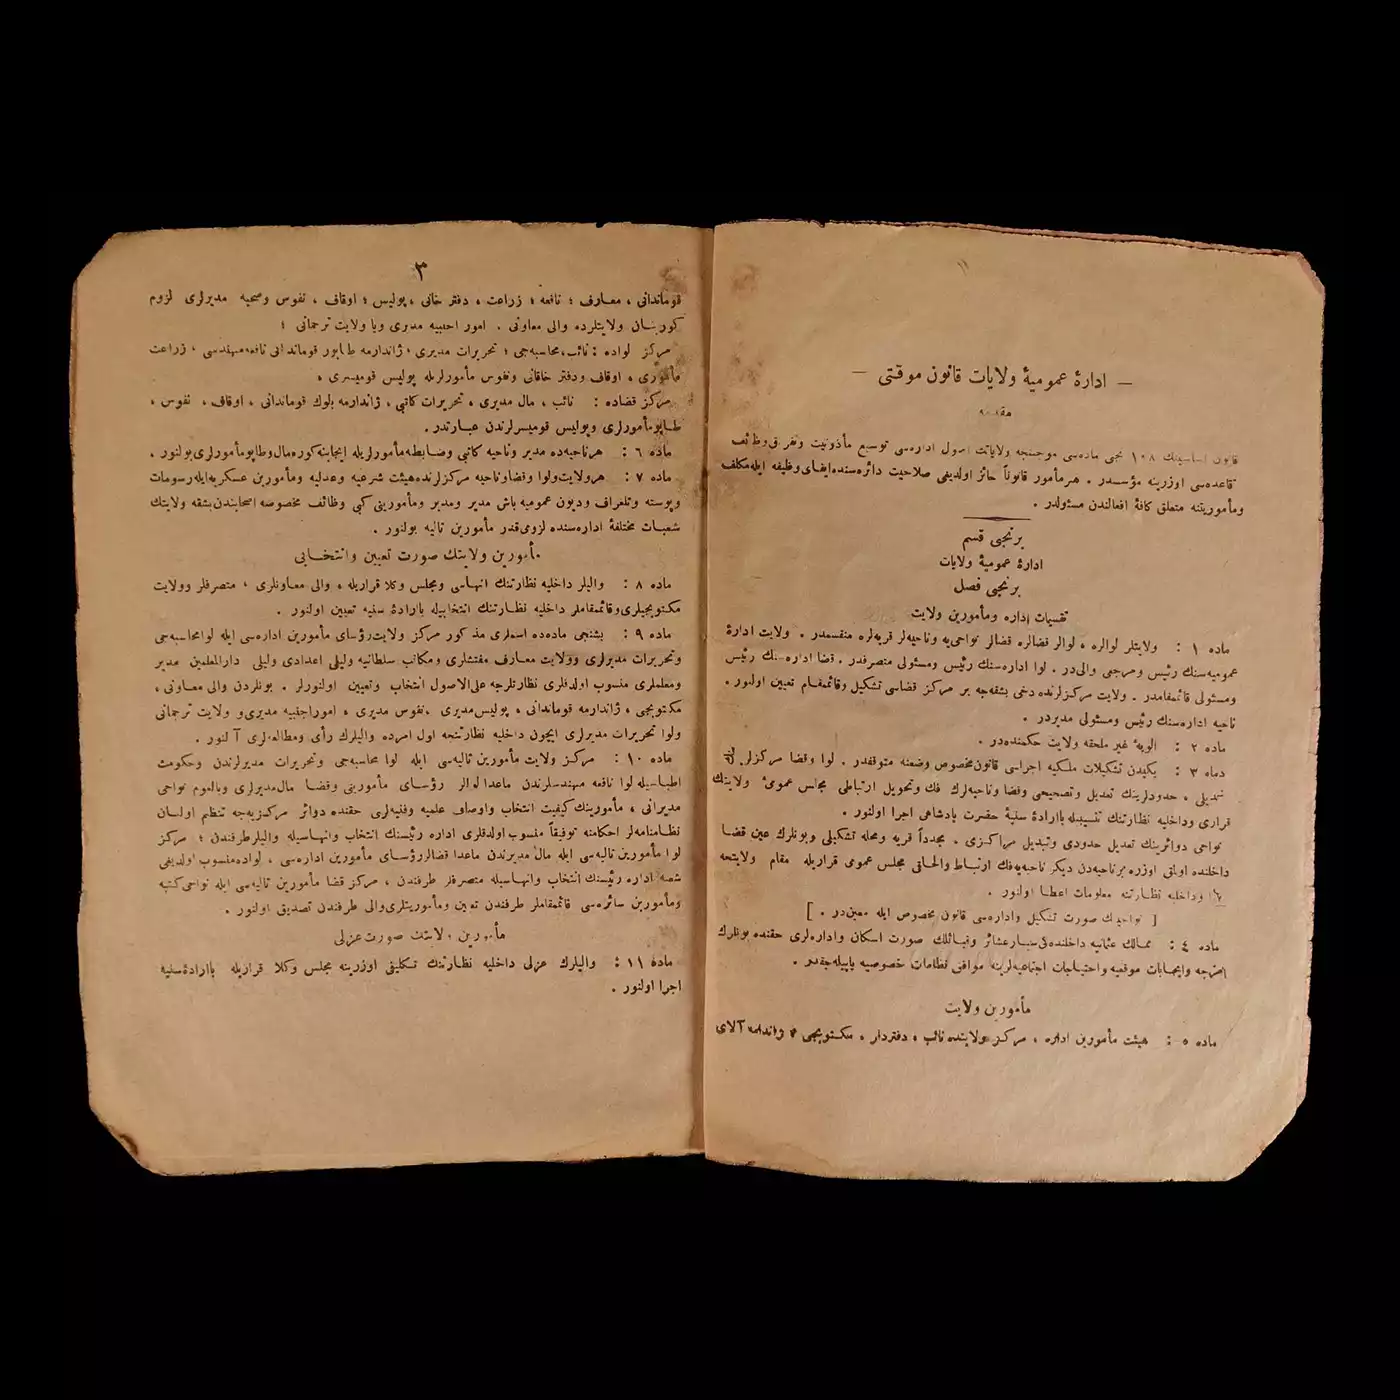 — ادارهٔ عمومیهٔ ولایات قانون موقتی —
مقدمه
قانون اساسینك ١٠٨ نجی ماده‌سی موجبنجه ولایاتك اصول اداره‌سی توسیع مأذونیت وتفریق وظائف
قاعده‌سی اوزرینه مؤسسدر . هرمأمور قانوناً حائز اولدیغی صلاحیت دائره‌سنده ایفای وظیفه ایله مكلف
ومأموریتنه متعلق كافهٔ افعالندن مسئولدر .
برنجی قسم
ادارهٔ عمومیهٔ ولایات
برنجی فصل
تقسیمات اداره ومأمورین ولایت
ماده ١ : ولایتلر لوالره ، لوالر قضالره قضالر نواحی‌یه وناحیه‌لر قریه‌لره منقسمدر . ولایت ادارهٔ
عمومیه‌سنك رئیس ومرجعی والی‌در . لوا اداره‌سنك رئیس ومسئولی متصرفدر . قضا اداره‌سنك رئیس
ومسئولی قائمقامدر . ولایت مركزلرنده دخی بشقه‌جه بر مركز قضاسی تشكیل وقائمقام تعیین اولنور .
ناحیه اداره‌سنك رئیس ومسئولی مدیردر .
ماده ٢ : الویهٔ غیر ملحقه ولایت حكمنده‌در .
ماده ٣ : یكیدن تشكیلات ملكیه اجراسی قانون مخصوص وضعنه متوقفدر . لوا وقضا مركزلرینك
تبدیلی ، حدودلرینك تعدیل وتصحیحی وقضا وناحیه‌لرك فك وتحویل ارتباطی مجلس عمومیٔ ولایتك
قراری وداخلیه نظارتنك تنسیبیله باارادهٔ سنیهٔ حضرت پادشاهی اجرا اولنور .
نواحی دوائرینك تعدیل حدودی وتبدیل مراكزی . مجدداً قریه ومحله تشكیلی وبونلرك عین قضا
داخلنده اولمق اوزره برناحیه‌دن دیكر ناحیه‌یه فك ارتباط والحاقی مجلس عمومی قراریله مقام ولایتجه
وداخلیه نظارتنه معلومات اعطا اولنور .
[ نواحینك صورت تشكیل واداره‌سی قانون مخصوص ایله معین‌در . ]
ماده ٤ : ممالك عثمانیه داخلنده‌كی سیار عشائر وقبائلك صورت اسكان واداره‌لری حقنده بونلرك
امزجه وایجابات موقعیه واحتیاجات اجتماعیه‌لرینه موافق نظامات خصوصیه یاپیله‌جقدر .
مأمورین ولایت
ماده ٥ : هیئت مأمورین اداره ، مركز ولایتده نائب ، دفتردار ، مكتوبجی ، ژاندارمه آلای
٣
قوماندانی ، معارف ؛ نافعه ؛ زراعت ، دفتر خانی ، پولیس ؛ اوقاف ، نفوس وصحیه مدیرلری لزوم
كورینان ولایتلرده والی معاونی . امور اجنبیه مدیری ویا ولایت ترجمانی ؛
مركز لواده : نائب ، محاسبه‌جی ؛ تحریرات مدیری ، ژاندارمه طابور قوماندانی نافعه مهندسی ، زراعت
مأموری ، اوقاف ودفتر خاقانی ونفوس مأمورلریله پولیس قومیسری ،
مركز قضاده : نائب ، مال مدیری ، تحریرات كاتبی ، ژاندارمه بلوك قوماندانی ، اوقاف ، نفوس ،
طاپو مأمورلری وپولیس قومیسرلرندن عبارتدر .
ماده ٦ : هرناحیه‌ده مدیر وناحیه كاتبی وضابطه مأمورلریله ایجابنه كوره مال وطاپو مأمورلری بولنور .
ماده ٧ : هرولایت ولوا وقضا وناحیه مركزلرنده هیئت شرعیه وعدلیه ومأمورین عسكریه ایله رسومات
وپوسته وتلغراف ودیون عمومیه باش مدیر ومدیر ومأمورینی كبی وظائف مخصوصه اصحابندن بشقه ولایتك
شعبات مختلفهٔ اداره‌سنده لزومی قدر مأمورین تالیه بولنور .
مأمورین ولایتك صورت تعیین وانتخابی
ماده ٨ : والیلر داخلیه نظارتنك انهاسی ومجلس وكلا قراریله ، والی معاونلری ، متصرفلر وولایت
مكتوبجیلری وقائمقاملر داخلیه نظارتنك انتخابیله باارادهٔ سنیه تعیین اولنور .
ماده ٩ : بشنجی ماده‌ده اسملری مذكور مركز ولایت رؤسای مأمورین اداره‌سی ایله لوا محاسبه‌جی
وتحریرات مدیرلری وولایت معارف مفتشلری ومكاتب سلطانیه ولیلی اعدادی ولیلی دارالمعلمین مدیر
ومعلملری منسوب اولدقلری نظارتلرجه علی‌الاصول انتخاب وتعیین اولنورلر . بونلردن والی معاونی ،
مكتوبجی ، ژاندارمه قوماندانی ، پولیس مدیری ، نفوس مدیری ، اموراجنبیه مدیری و ولایت ترجمانی
ولوا تحریرات مدیرلری ایچون داخلیه نظارتنجه اول امرده والیلرك رأی ومطالعه‌لری آلنور .
ماده ١٠ : مركز ولایت مأمورین تالیه‌سی ایله لوا محاسبه‌جی وتحریرات مدیرلرندن وحكومت
اطباسیله لوا نافعه مهندسلرندن ماعدا لوالر رؤسای مأمورینی وقضا مال مدیرلری وبالعموم نواحی
مدیرانی ، مأمورینك كیفیت انتخاب واوصاف علمیه وفنیه‌لری حقنده دوائر مركزیه‌جه تنظیم اولنان
نظامنامه‌لر احكامنه توفیقاً منسوب اولدقلری اداره رئیسنك انتخاب وانهاسیله والیلر طرفندن ؛ مركز
لوا مأمورین تالیه‌سی ایله مال مدیرندن ماعدا قضالر رؤسای مأمورین اداره‌سی ، لواده منسوب اولدیغی
شعبه اداره رئیسنك انتخاب وانهاسیله متصرفلر طرفندن ، مركز قضا مأمورین تالیه‌سی ایله نواحی كتبه
ومأمورین سائره‌سی قائمقاملر طرفندن تعیین ومأموریتلری والی طرفندن تصدیق اولنور .
مأمورین ولایتك صورت عزلی
ماده ١١ : والیلرك عزلی داخلیه نظارتنك تكلیفی اوزرینه مجلس وكلا قراریله باارادهٔ سنیه
اجرا اولنور .